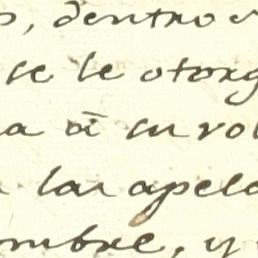 , dentro
se le otorg
a à su vol
las apela
ombre, y